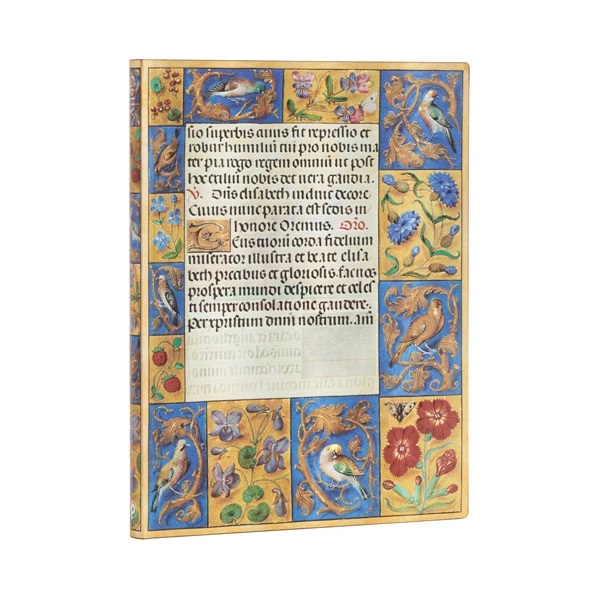 sio superbis cuius fit repressio et
robur humiliū tu pro nobis ma
ter pia rego regem omniū ut post
hoc exiliū nobis det vera gaudia.
V. Dñs elisabeth induit decore.
Cuius nunc parata est sedis in
honore Oremus. Oro.
Tuorū corda fidelium
miserator illustra et beate elisa
beth precibus et gloriosis. fac nos
prospera mundi despicere et celes
ti semper consolatione gaudere.
Per xpristum dnm nostrum. am